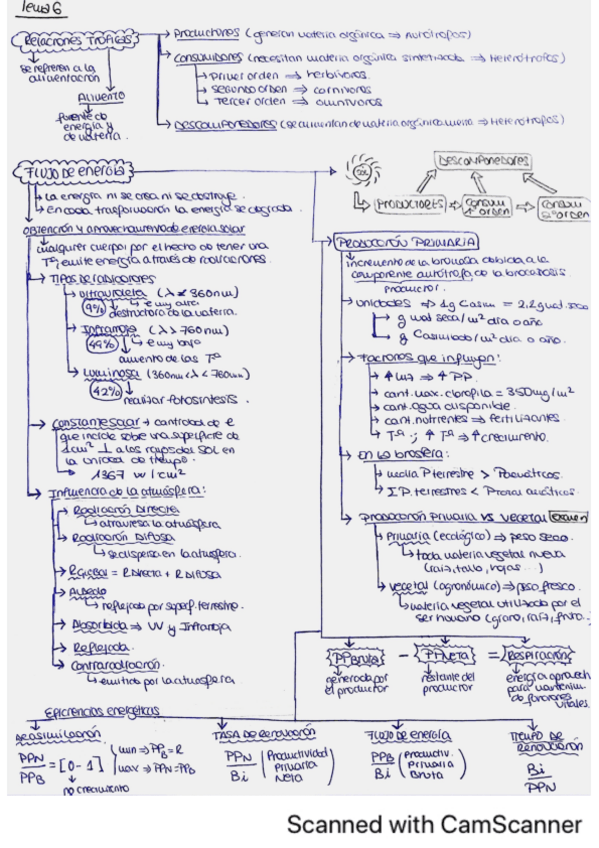 Tema 6
RELACIONES TRÓFICAS
Se refieren a la alimentación
ALIMENTO
fuente de energía y de materia.
PRODUCTORES (generan materia orgánica ⇒ Autótrofos)
CONSUMIDORES (necesitan materia orgánica sintetizada ⇒ Heterótrofos)
Primer orden ⇒ herbívoros.
Segundo orden ⇒ carnívoros
Tercer orden ⇒ omnívoros
DESCOMPONEDORES (se alimentan de materia orgánica muerta ⇒ Heterótrofos)
FLUJO DE ENERGÍA
La energía ni se crea ni se destruye.
En cada trasformación la energía se degrada.
Obtención y aprovechamiento de energía solar
Cualquier cuerpo por el hecho de tener una Tª, emite energía a través de radiaciones.
TIPOS DE RADIACIONES
Ultravioleta (λ < 360nm)
9% E muy alta
destructora de la materia.
Infrarroja (λ > 760nm)
49% E muy bajo
aumento de las Tª
Luminosa (360nm < λ < 760nm)
42%
realizar fotosíntesis.
CONSTANTE SOLAR → cantidad de E
que incide sobre una superficie de
1cm² ⊥ a los rayos del SOL en
la unidad de tiempo.
1367 W/cm²
Influencia de la atmósfera:
Radiación DIRECTA
atraviesa la atmósfera
Radiación DIFUSA
se dispersa en la atmósfera.
R. Global = R DIRECTA + R DIFUSA
Albedo
reflejada por superf. terrestre.
Absorbida ⇒ UV y Infrarroja
Reflejada.
Contrarradiación.
emitida por la atmósfera.
SOL
DESCOMPONEDORES
PRODUCTORES
CONSUM 1º ORDEN
CONSUM 2º ORDEN
PRODUCCIÓN PRIMARIA
incremento de la biomasa debida a la
componente autótrofa de la biocenosis
Productor.
Unidades ⇒ 1g Casim = 2.2g mat. seca
g mat seca/m² día o año
g Casimilado/m² día o año.
Factores que influyen:
↑ luz ⇒ ↑ PP.
cant. max. clorofila = 350mg/m²
cant. agua disponible.
cant. nutrientes ⇒ fertilizantes.
Tª ; ↑ Tª ⇒ ↑ crecimiento.
En la biosfera:
media P terrestre > P acuáticos.
ΣP. terrestres < acuáticos.
PRODUCCIÓN PRIMARIA VS VEGETAL Examen
Primaria (ecológico) ⇒ peso seco.
toda materia vegetal nueva
(raíz, tallo, hojas ...)
Vegetal (agronómico) ⇒ peso fresco.
materia vegetal utilizada por el
ser humano (grano, raíz, fruto..)
PPBruta – PPNeta = RESPIRACIÓN
generada por el productor
restante del productor
energía aprovech para mantenim de funciones vitales.
Eficiencias energéticas
DE ASIMILACIÓN
PPN/PPB = [0-1]
min ⇒ PPB = R
max ⇒ PPN = PPB
no crecimiento
TASA DE RENOVACIÓN
PPN/Bi (Productividad Primaria Neta
FLUJO DE ENERGÍA
PPB/Bi (Productiv. Primaria Bruta
TIEMPO DE RENOVACIÓN
Bi/PPN
Scanned with CamScanner